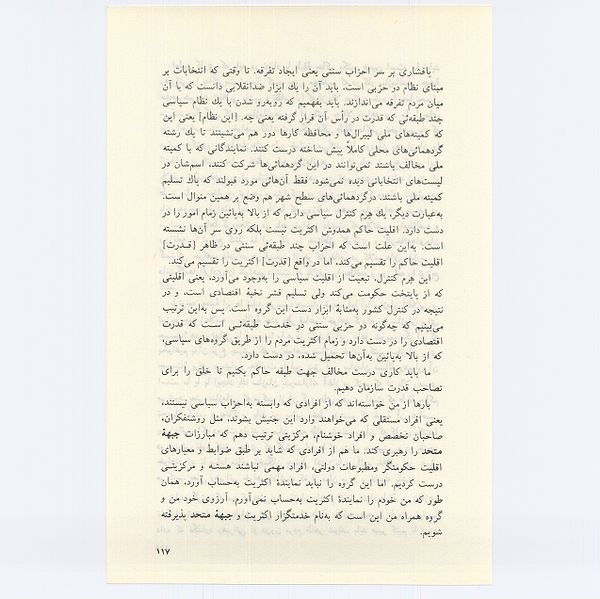 پافشاری بر سر احزاب سنتی یعنی ایجاد تفرقه. تا وقتی که انتخابات بر
مبنای نظام دو حزبی است، باید آن را یك ابزار ضدانقلابی دانست که با آن
میان مردم تفرقه می‌اندازند. باید بفهمیم که روبه‌رو شدن با یك نظام سیاسی
چند طبقه‌ئی که قدرت در رأس آن قرار گرفته یعنی چه. [این نظام] یعنی این
که کمیته‌های ملی لیبرال‌ها و محافظه کارها دور هم می‌نشینند تا یك رشته
گردهمائی‌های محلی کاملاً پیش ساخته درست کنند. نمایندگانی که با کمیته
ملی مخالف باشند نمی‌توانند در این گردهمائی‌ها شرکت کنند، اسم‌شان در
لیست‌های انتخاباتی دیده نمی‌شود. فقط آن‌هائی مورد قبولند که پاك تسلیم
کمیته ملی باشند. درگردهمائی‌های سطح شهر هم وضع بر همین منوال است.
به‌عبارت دیگر، یك هرم کنترل سیاسی داریم که از بالا به‌پائین زمام امور را در
دست دارد. اقلیت حاکم همدوش اکثریت نیست بلکه روی سر آن‌ها نشسته
است. به‌این علت است که احزاب چند طبقه‌ئی سنتی در ظاهر [قـدرت]
اقلیت حاکم را تقسیم می‌کند، اما در واقع [قدرت] اکثریت را تقسیم می‌کند.
این هرم کنترل، تبعیت از اقلیت سیاسی را به‌وجود می‌آورد، یعنی اقلیتی
که از پایتخت حکومت می‌کند ولی تسلیم قشر نخبهٔ اقتصادی است، و در
نتیجه در کنترل کشور به‌مثابهٔ ابزار دست این گروه است. پس به‌این ترتیب
می‌بینیم که چه‌گونه دو حزبی سنتی در خدمـت طبقه‌ئـی اسـت که قدرت
اقتصادی را در دست دارد و زمام اکثریت مردم را از طریق گروه‌های سیاسی،
که از بالا به‌پائین به‌آن‌ها تحمیل شده، در دست دارد.
ما باید کاری درست مخالف جهت طبقه حاکم بکنیم تا خلق را برای
تصاحب قدرت سازمان دهیم.
بارها از من خواسته‌اند که از افرادی که وابسته به‌احزاب سیاسی نیستند،
یعنی افراد مستقلی که می‌خواهند وارد این جنبش بشوند، مثل روشنفکران،
صاحبان تخصص و افراد خوشنام، مرکزیتی ترتیب دهم که مبارزات جبههٔ
متحد را رهبری کند. ما هم از افرادی که شاید بر طبق ضوابط و معیارهای
اقلیت حکومتگر ومطبوعات دولتی، افراد مهمی نباشند هستـه و مرکزیتـی
درست کردیم. اما این گروه را نباید نمایندهٔ اکثریت به‌حساب آورد، همان
طور که من خودم را نمایندهٔ اکثریت به‌حساب نمی‌آورم. آرزوی خود من و
گروه همراه من این است که به‌نام خدمتگزار اکثریت و جبههٔ متحد پذیرفته
شویم.
۱۱۷